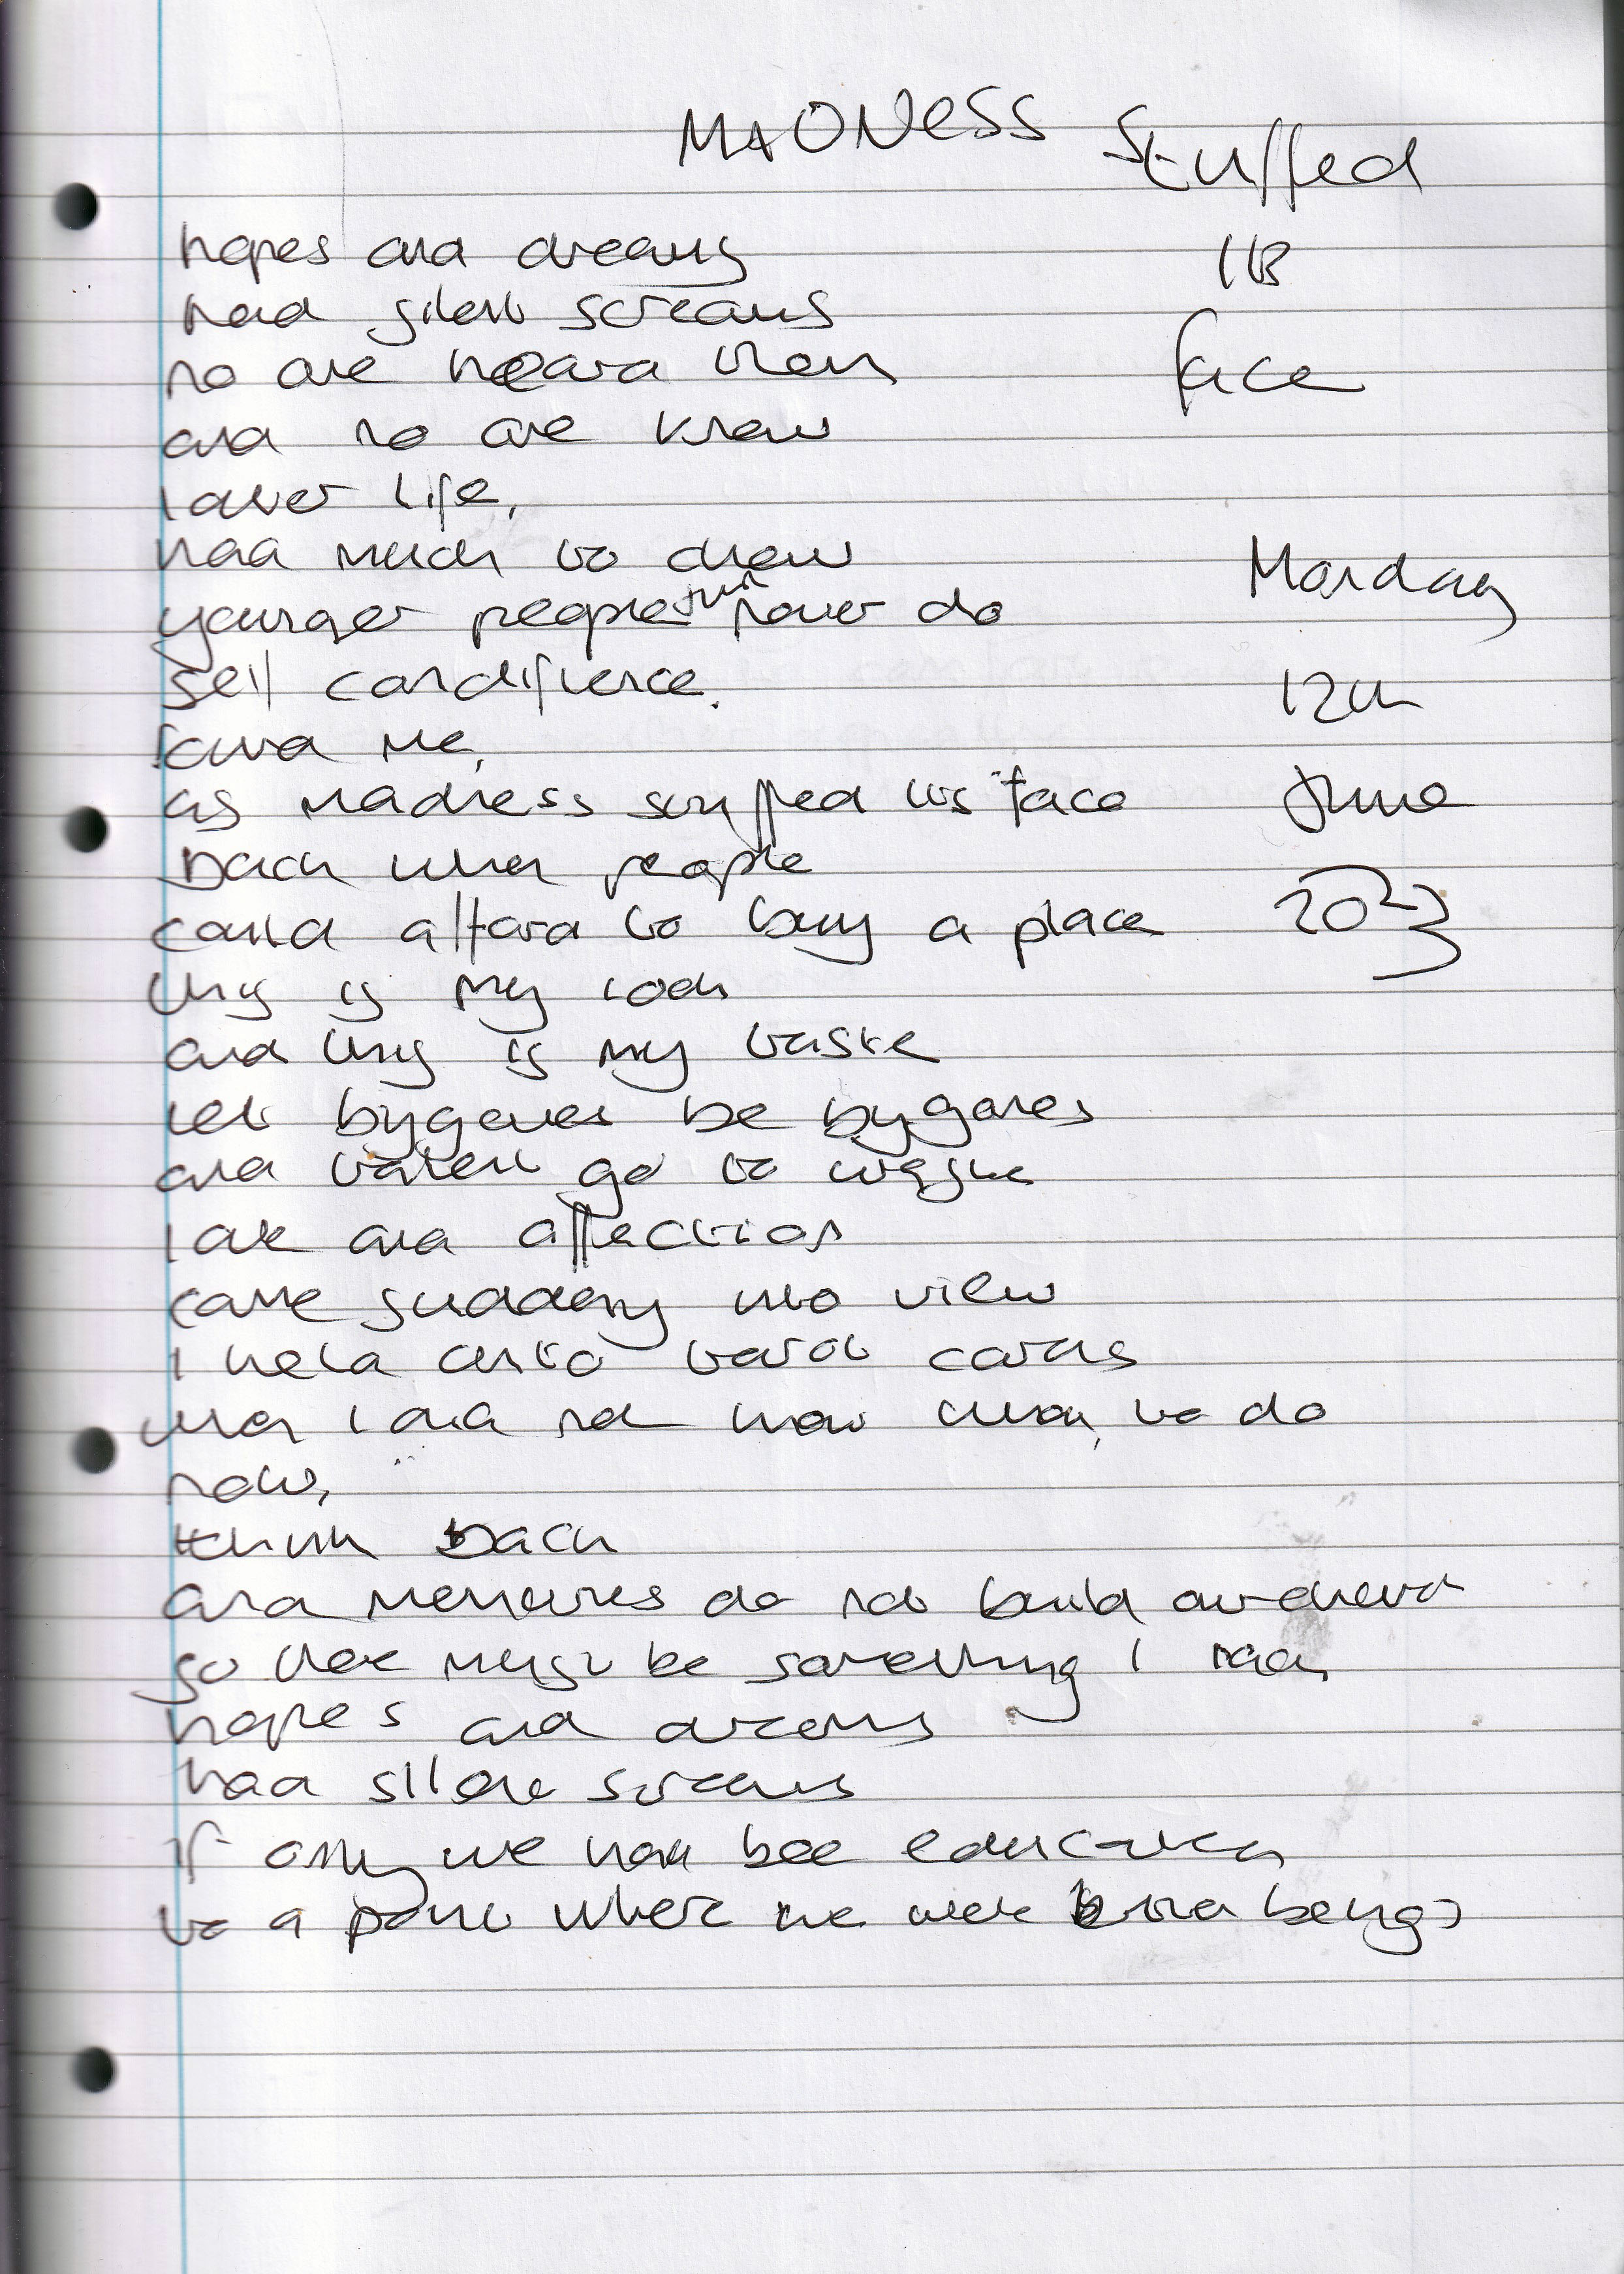 MADNESS Stuffed
its
face
Monday
12th
June
2023
hopes and dreams
had silent screams
no one heard them
and no one knew
later life,
had much to chew
younger people still never do
self condifience.
found me,
as madness stuffed its face
back when people
could afford to buy a place
this is my look
and this is my taste
let bygones be bygones
and talent go to waste
love and affection
came suddenly into view
I held onto tarot cards
when I did not know what to do
now,
think back
and memories do not build
so there must be something I had
hopes and dreams
had silent screams
if only we had been educated
to a point where we were kind beings